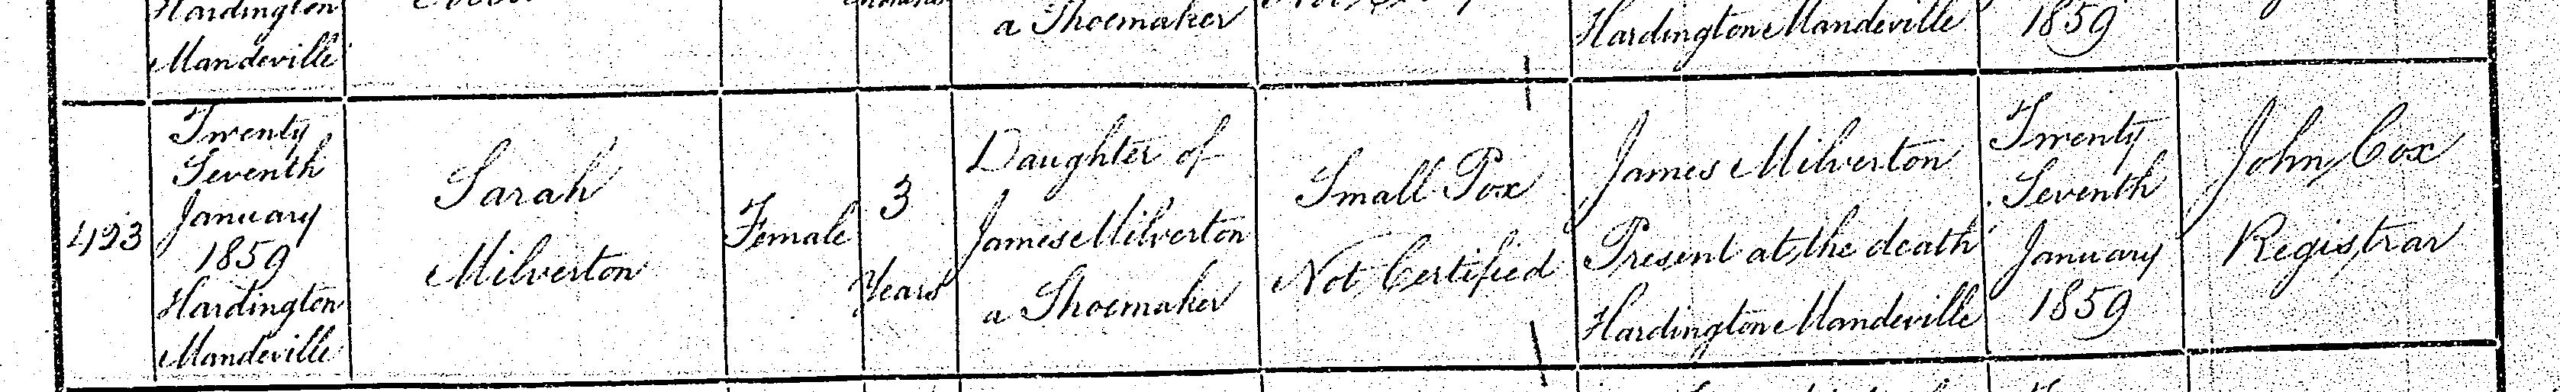 Hardington
Mandeville
a Shoemaker
Hardington Mandeville
1859
423
Twenty
Seventh
January
1859
Hardington
Mandeville
Sarah
Milverton
Female
3
Years
Daughter of
James Milverton
a Shoemaker
Small Pox
Not Certified
James Milverton
Present at the death
Hardington Mandeville
Twenty
Seventh
January
1859
John Cox
Registrar